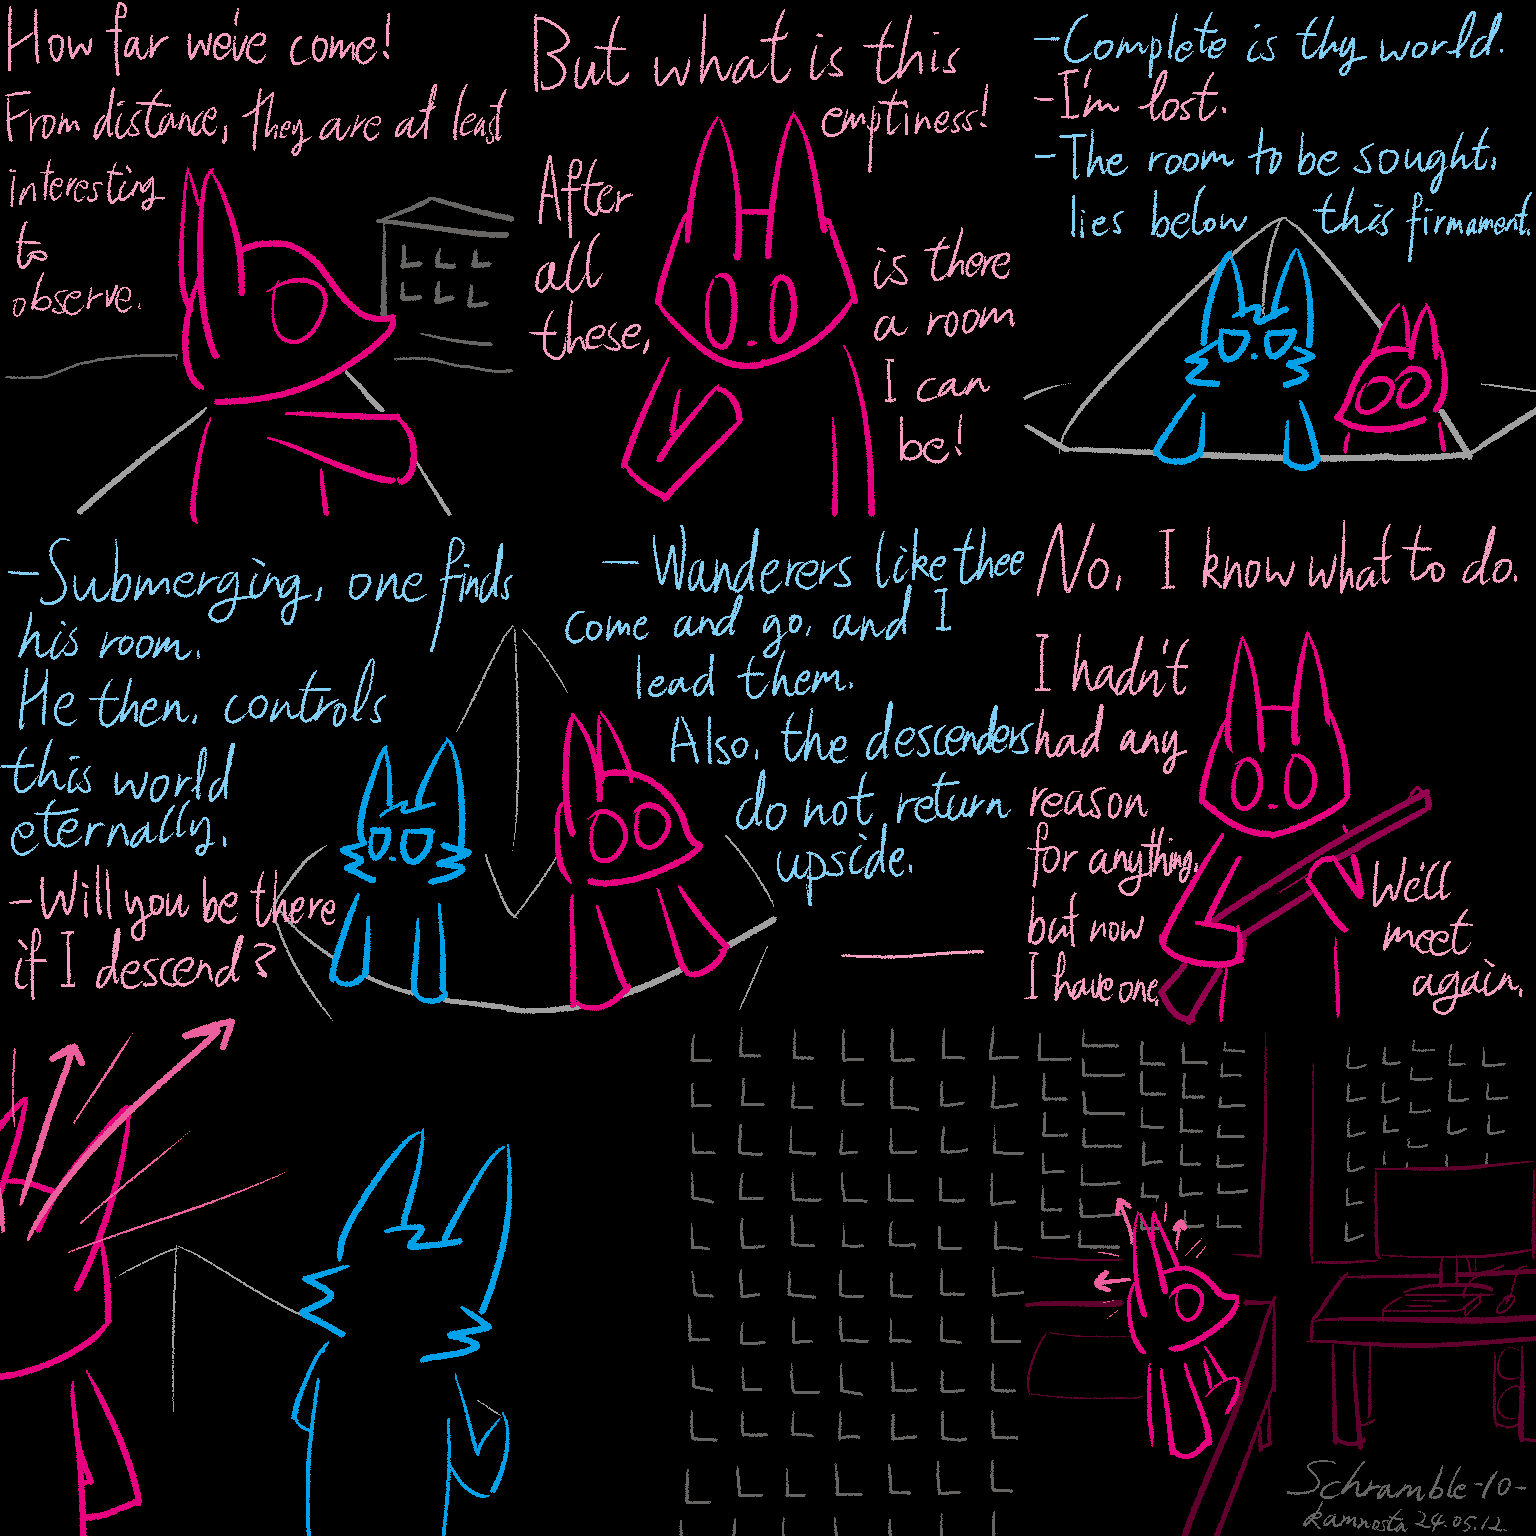 How far we've come!
From distance, they are at least
interesting
to
observe.
But what is this
emptiness!
After
all
these,
is there
a room
I can
be!
-Complete is thy world.
-I'm lost.
-The room to be sought,
lies below this firmament.
-Submerging, one finds
his room.
He then, controls
this world
eternally.
-Will you be there
if I descend?
-Wanderers like thee
come and go, and I
lead them.
Also, the descenders
do not return
upside.
No, I know what to do.
I hadn't
had any
reason
for anything,
but now
I have one.
We'll
meet
again.
Schramble-10-
kamnosta 24.05.12.